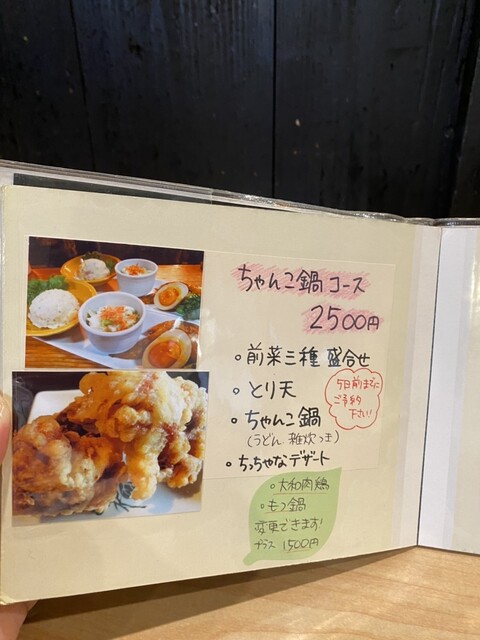 ちゃんこ鍋 コース
2500円
。前菜三種 盛合せ
。とり天
。ちゃんこ鍋
(うどん 雑炊つき)
。ちっちゃなデザート
5日前までに
ご予約
下さい!
。大和肉鶏
。もつ鍋
変更できます!
プラス 1500円